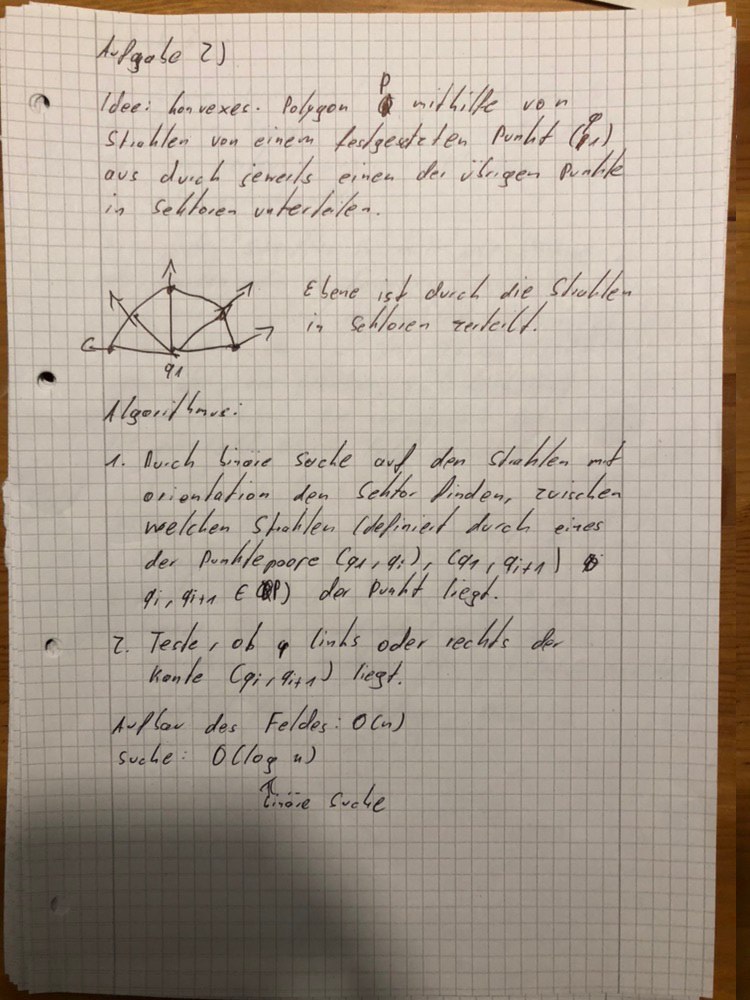 Aufgabe 2)
P
Idee: konvexes. Polygon mithilfe von
Strahlen von einem festgesetzten Punkt (q1)
aus durch jeweils einen der übrigen Punkte
in Sektoren unterteilen.
Ebene ist durch die Strahlen
in Sektoren zerteilt.
q1
Algorithmus:
1. Durch binäre Suche auf den Strahlen mit
orientation den Sektor finden, zwischen
welchen Strahlen (definiert durch eines
der Punktepaare (q1, qi), (q1, qi+1)
qi, qi+1 ∈ P) der Punkt liegt.
2. Teste, ob q links oder rechts der
Kante (qi, qi+1) liegt.
Aufbau des Feldes: O(n)
Suche: O(log n)
↑
binäre Suche